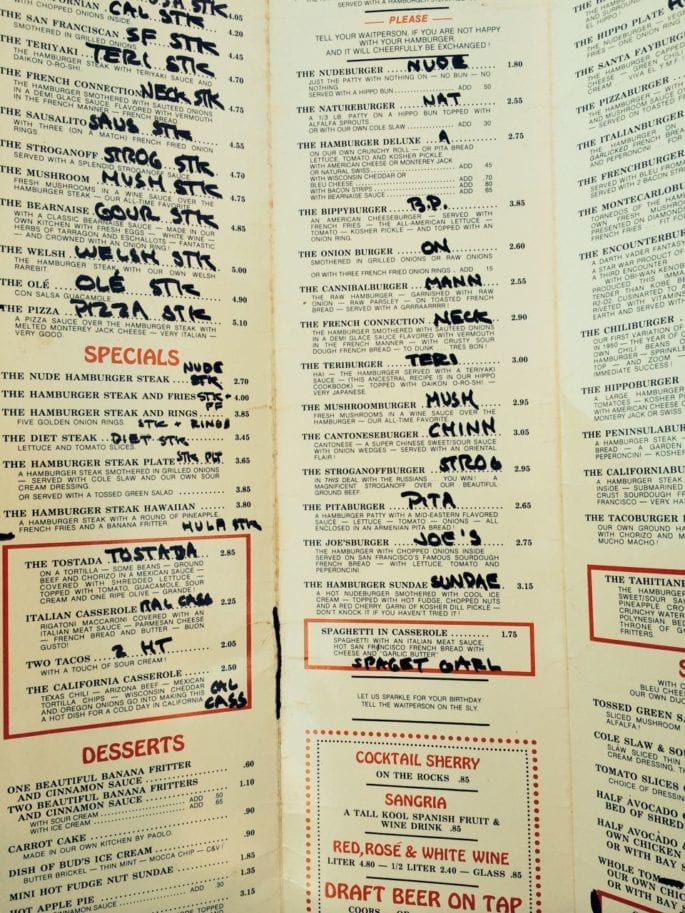 WITH CHOPPED ONIONS INSIDE
CAL STK
4.05
THE SAN FRANCISCAN SF STK 4.20
SMOTHERED IN GRILLED ONIONS
THE TERIYAKI TERI STK 4.70
THE HAMBURGER STEAK WITH TERIYAKI SAUCE AND
DAIKON O-RO-SHI
THE FRENCH CONNECTION NECK STK 4.75
THE HAMBURGER SMOTHERED WITH SAUTEED ONIONS
IN A DEMI GLACE SAUCE FLAVORED WITH VERMOUTH
IN THE FRENCH MANNER — FRENCH BREAD
THE SAUSALITO SAUS STK 4.55
WITH THREE (ON A MATCH) FRENCH FRIED ONION
RINGS.
THE STROGANOFF STROG STK 4.70
SERVED WITH A SPLENDID STROGANOFF SAUCE
THE MUSHROOM MUSH STK 4.75
FRESH MUSHROOMS IN A WINE SAUCE OVER THE
HAMBURGER STEAK — OUR ALL-TIME FAVORITE
THE BEARNAISE GOUR STK 4.85
WITH A CLASSIC BEARNAISE SAUCE — MADE IN OUR
OWN KITCHEN WITH FRESH EGGS — WHITE WINE —
HERBS OF TARRAGON AND ESCHALLOTS — FANTASTIC
— AND CROWNED WITH AN ONION RING
THE WELSH WELSH STK 5.00
THE HAMBURGER STEAK WITH OUR OWN WELSH
RAREBIT.
THE OLÉ OLÉ STK 4.90
CON SALSA GUACAMOLE
THE PIZZA PIZZA STK 5.10
A PIZZA SAUCE OVER THE HAMBURGER STEAK WITH
MELTED MONTEREY JACK CHEESE — VERY ITALIAN —
VERY GOOD.
SPECIALS
THE NUDE HAMBURGER STEAK NUDE STK 2.70
THE HAMBURGER STEAK AND FRIES STK + FF 4.00
THE HAMBURGER STEAK AND RINGS 3.85
FIVE GOLDEN ONION RINGS. STK + RINGS
THE DIET STEAK DIET STK 3.45
LETTUCE AND TOMATO SLICES.
THE HAMBURGER STEAK PLATE STK PLT 3.65
A HAMBURGER STEAK SMOTHERED IN GRILLED ONIONS
— SERVED WITH COLE SLAW AND OUR OWN SOUR
CREAM DRESSING.
OR SERVED WITH A TOSSED GREEN SALAD 3.85
THE HAMBURGER STEAK HAWAIIAN 3.80
A HAMBURGER STEAK WITH A ROUND OF PINEAPPLE,
FRENCH FRIES AND A BANANA FRITTER. HULA STK
THE TOSTADA TOSTADA 2.85
ON A TORTILLA — SOME BEANS — GROUND
BEEF AND CHORIZO IN A MEXICAN SAUCE —
COVERED WITH SHREDDED LETTUCE —
TOPPED WITH TOMATO, GUACAMOLE, SOUR
CREAM AND ONE RIPE OLIVE — GRANDE!
ITALIAN CASSEROLE ITAL CASS 2.25
RIGATONI MACCARONI COVERED WITH AN
ITALIAN MEAT SAUCE — PARMESAN CHEESE
— FRENCH BREAD AND BUTTER — BUON
GUSTO!
TWO TACOS 2 HT 2.05
WITH A TOUCH OF SOUR CREAM!
THE CALIFORNIA CASSEROLE 2.50
TEXAS CHILI — ARIZONA BEEF — MEXICAN
TORTILLA CHIPS — WISCONSIN CHEDDAR
AND OREGON ONIONS GO INTO MAKING THIS
A HOT DISH FOR A COLD DAY IN CALIFORNIA
CAL CASS
DESSERTS
ONE BEAUTIFUL BANANA FRITTER
AND CINNAMON SAUCE .60
TWO BEAUTIFUL BANANA FRITTERS
AND CINNAMON SAUCE 1.10
WITH SOUR CREAM ADD 50
WITH ICE CREAM ADD 65
CARROT CAKE .90
MADE IN OUR OWN KITCHEN BY PAOLO.
DISH OF BUD'S ICE CREAM .90
BUTTER BRICKEL — THIN MINT — MOCCA CHIP —
MINI HOT FUDGE NUT SUNDAE 1.35
HOT APPLE PIE 1.15
CINNAMON SAUCE ADD 30
PLEASE
TELL YOUR WAITPERSON, IF YOU ARE NOT HAPPY
WITH YOUR HAMBURGER,
AND IT WILL CHEERFULLY BE EXCHANGED!
THE NUDEBURGER NUDE 1.80
JUST THE PATTY WITH NOTHING ON — NO BUN — NO
NOTHING
SERVED WITH A HIPPO BUN ADD .50
THE NATUREBURGER NAT 2.55
A 1/3 LB PATTY ON A HIPPO BUN TOPPED WITH
ALFALFA SPROUTS
OR WITH OUR OWN COLE SLAW ADD 30
THE HAMBURGER DELUXE A 2.75
ON OUR OWN CRUNCHY ROLL — OR PITA BREAD
LETTUCE, TOMATO AND KOSHER PICKLE.
WITH AMERICAN CHEESE OR MONTEREY JACK
OR NATURAL SWISS ADD 45
WITH WISCONSIN CHEDDAR OR
BLEU CHEESE ADD .70
WITH BACON STRIPS ADD 80
WITH BEARNAISE SAUCE ADD 65
THE BIPPYBURGER B.P. 3.85
AN AMERICAN CHEESEBURGER — SERVED WITH
FRENCH FRIES — THE ALL-AMERICAN LETTUCE —
TOMATO — KOSHER PICKLE — AND TOPPED WITH AN
ONION RING.
THE ONION BURGER ON 2.60
SMOTHERED IN GRILLED ONIONS OR RAW ONIONS
OR WITH THREE FRENCH FRIED ONION RINGS. ADD 15
THE CANNIBALBURGER MANN 2.55
THE RAW HAMBURGER — GARNISHED WITH RAW
ONION — RAW PARSLEY — ON TOASTED FRENCH
BREAD — SERVED WITH A GRRRRARRRR!
THE FRENCH CONNECTION NECK 2.90
THE HAMBURGER SMOTHERED WITH SAUTEED ONIONS
IN A DEMI GLACE SAUCE FLAVORED WITH VERMOUTH
IN THE FRENCH MANNER — WITH CRUSTY SOUR
DOUGH FRENCH BREAD — TO DUNK TRES BON!
THE TERIBURGER TERI 3.00
HAI — THE HAMBURGER SERVED WITH A TERIYAKI
SAUCE — (THIS ANCESTRAL RECIPE IS IN OUR HIPPO
COOKBOOK) — TOPPED WITH DAIKON O-RO-SHI —
VERY JAPANESE
THE MUSHROOMBURGER MUSH 2.95
FRESH MUSHROOMS IN A WINE SAUCE OVER THE
HAMBURGER — OUR ALL-TIME FAVORITE.
THE CANTONESEBURGER CHINN 3.05
CANTONESE — A SUPER CHINESE SWEET/SOUR SAUCE
WITH ONION WEDGES — SERVED WITH AN ORIENTAL
FLAIR!
THE STROGANOFFBURGER STROG 2.95
IN THIS DEAL WITH THE RUSSIANS YOU WIN! A
MAGNIFICENT STROGANOFF OVER OUR BEAUTIFUL
GROUND BEEF.
THE PITABURGER PITA 2.65
A HAMBURGER PATTY WITH A MID-EASTERN FLAVORED
SAUCE — LETTUCE — TOMATO — ONIONS — ALL
ENCLOSED IN AN ARMENIAN PITA BREAD!
THE JOE'SBURGER JOE'S 2.75
THE HAMBURGER WITH CHOPPED ONIONS INSIDE
SERVED ON SAN FRANCISCO'S FAMOUS SOURDOUGH
FRENCH BREAD — WITH LETTUCE, TOMATO AND
PEPERONCINI
THE HAMBURGER SUNDAE SUNDAE 3.15
A HOT NUDEBURGER SMOTHERED WITH COOL ICE
CREAM — TOPPED WITH HOT FUDGE, CHOPPED NUTS
AND A RED CHERRY. GARNI OF KOSHER DILL PICKLE —
DON'T KNOCK IT IF YOU HAVEN'T TRIED IT!
SPAGHETTI IN CASSEROLE 1.75
SPAGHETTI WITH AN ITALIAN MEAT SAUCE,
HOT SAN FRANCISCO FRENCH BREAD WITH
CHEESE AND "GARLIC BUTTER"
SPAGET GARL
LET US SPARKLE FOR YOUR BIRTHDAY.
TELL THE WAITPERSON ON THE SLY
COCKTAIL SHERRY
ON THE ROCKS .85
SANGRIA
A TALL KOOL SPANISH FRUIT &
WINE DRINK .85
RED, ROSÉ & WHITE WINE
LITER 4.80 — 1/2 LITER 2.40 — GLASS .85
DRAFT BEER ON TAP
THE HIPPO PLATE
THE SANTA FAYBURGER
THE PIZZABURGER
THE ITALIANBURGER
THE FRENCHBURGER
THE MONTECARLOBURGER
THE ENCOUNTERBURGER
THE CHILIBURGER
THE HIPPOBURGER
THE PENINSULABURGER
THE CALIFORNIABURGER
THE TACOBURGER
THE TAHITIAN
TOSSED GREEN
SLICED MUSHROOM
ALFALFA!
COLE SLAW &
SLAW SLICED THIN
CREAM DRESSING.
TOMATO SLICES
CHOICE OF DRESSING
HALF AVOCADO
BED OF SHRED
HALF AVOCADO
OUR OWN CHICKEN
OR WITH BAY
WHOLE TOM
OUR OWN CHICKEN
OR WITH BAY